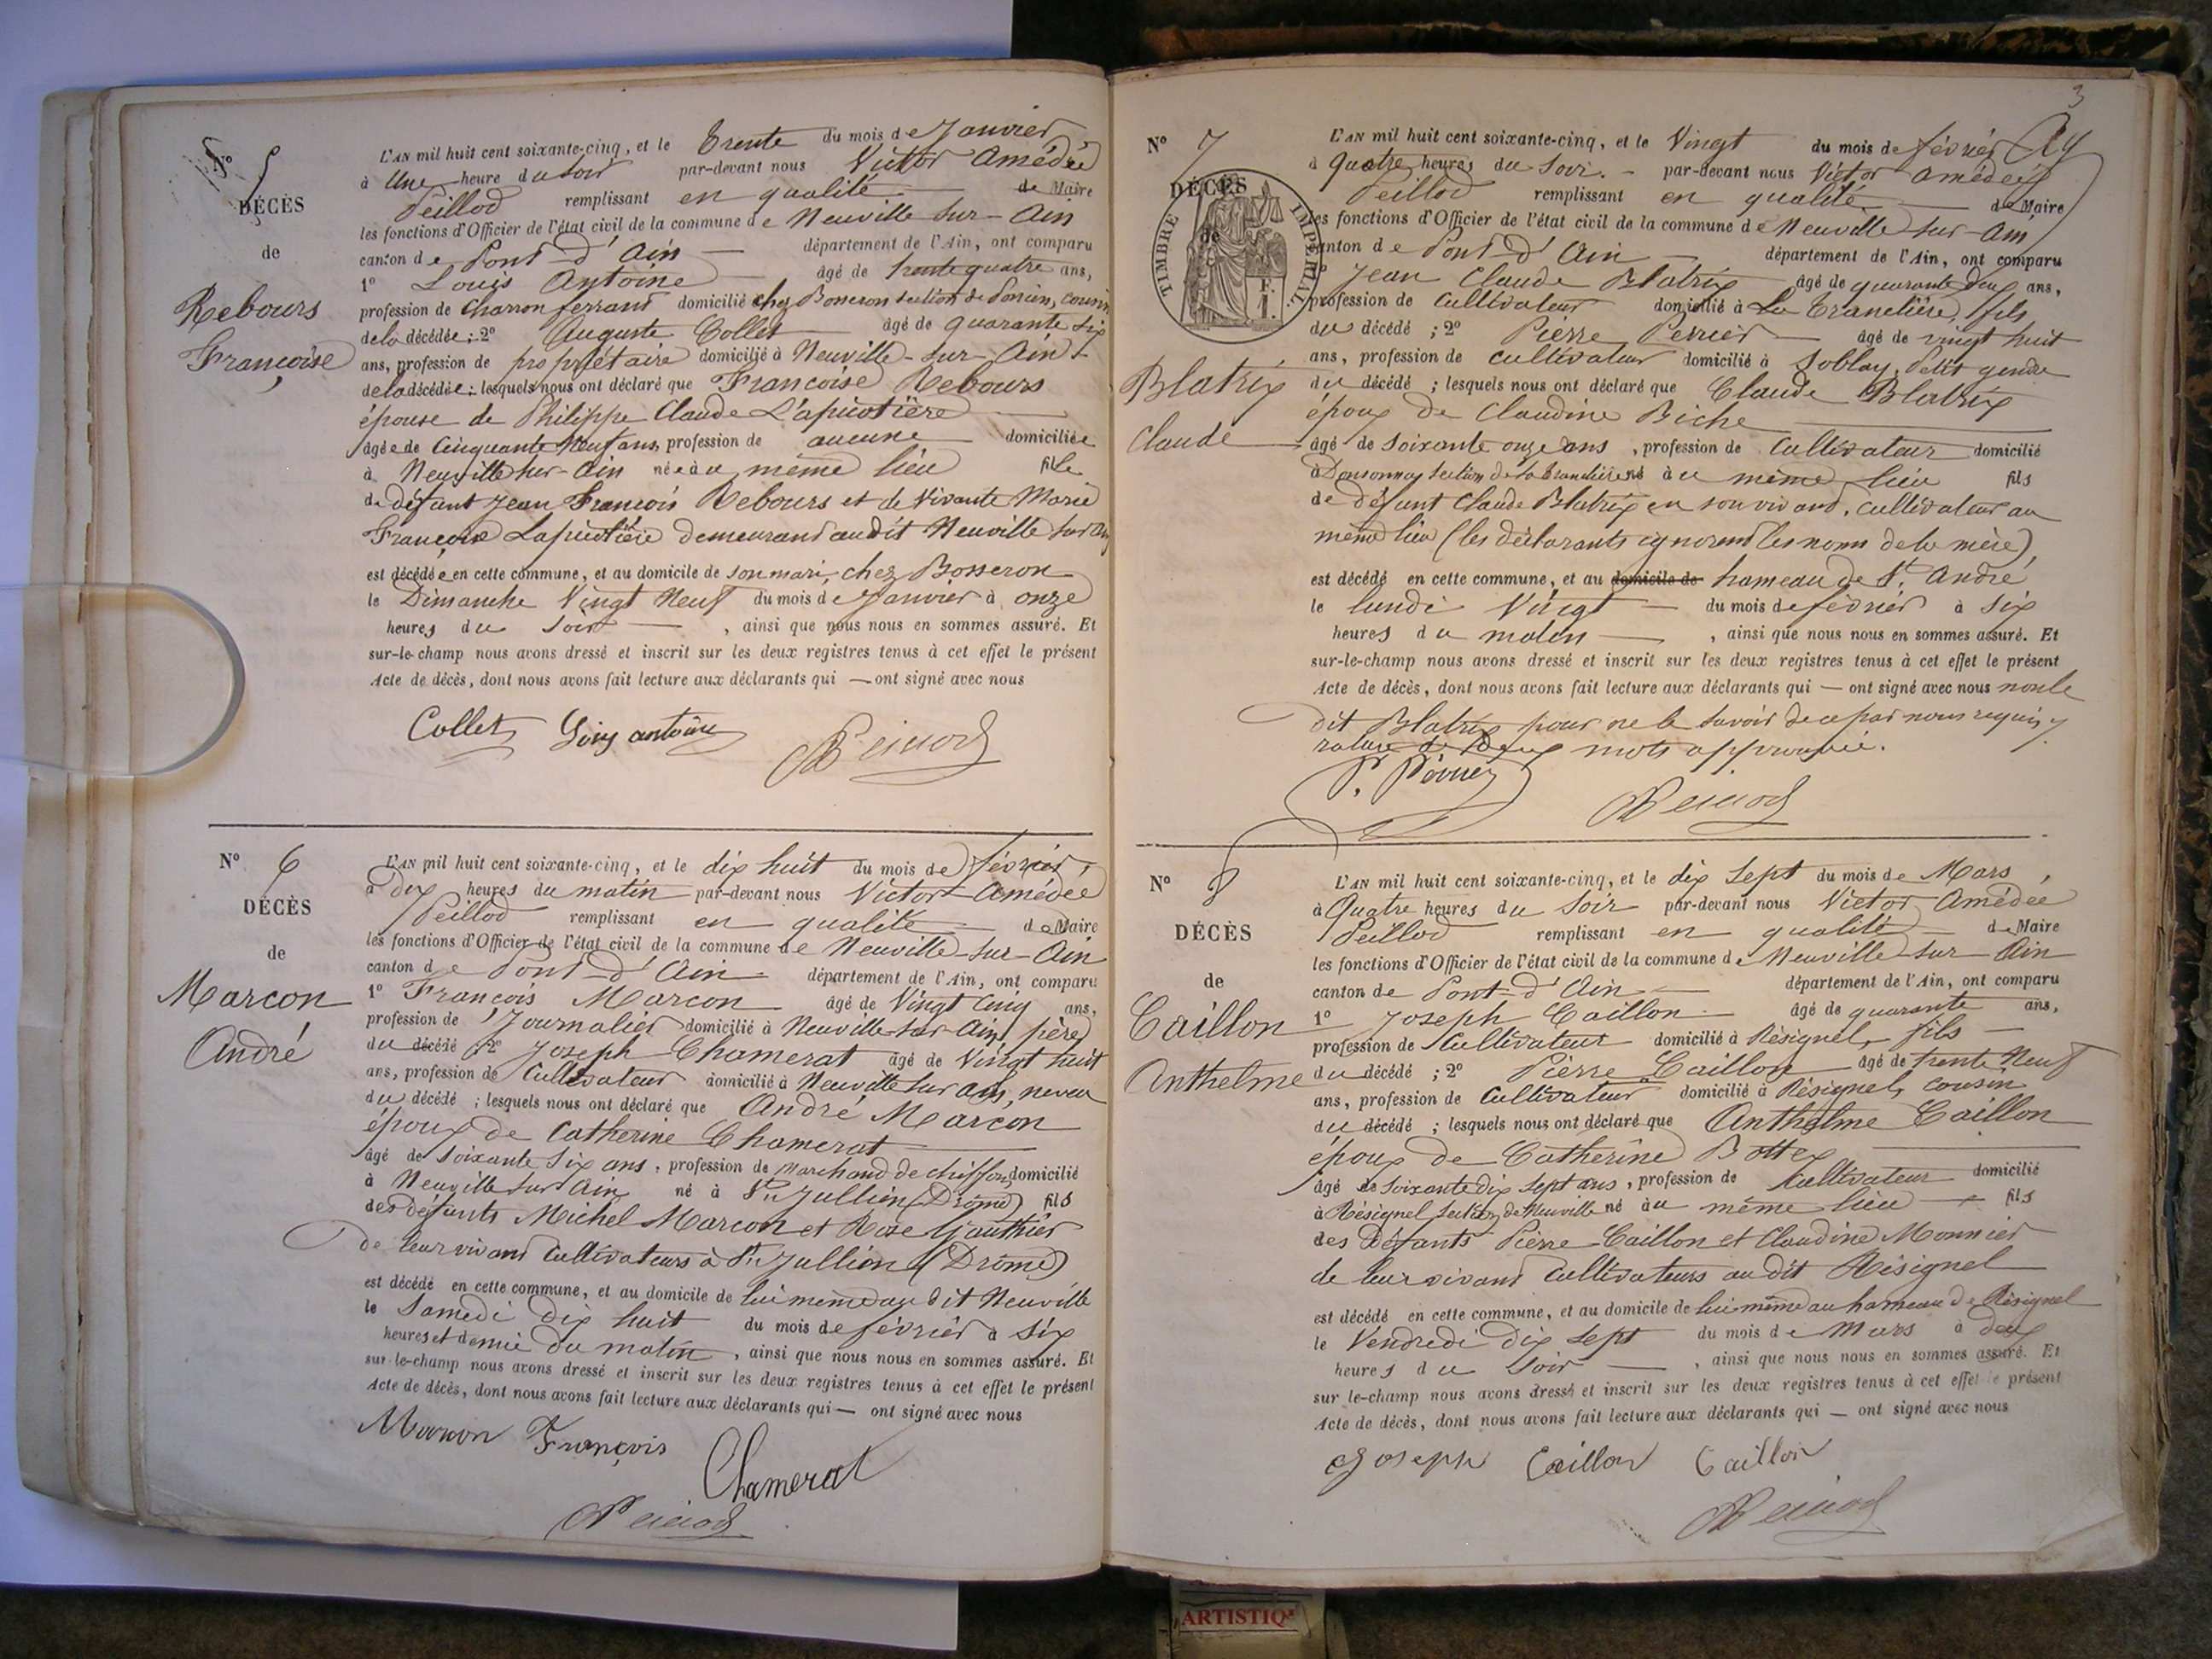 Nº 5
DÉCÈS
de
Rebours
Françoise
L'AN mil huit cent soixante-cinq, et le trente du mois de Janvier
à Une heure du soir par-devant nous Victor Amédée
Peillod remplissant en qualité de Maire
les fonctions d'Officier de l'état civil de la commune de Neuville-sur-Ain
canton de Pont-d'Ain département de l'Ain, ont comparu
1º Louis Antoine âgé de trente quatre ans,
profession de charron ferrant domicilié chez Bosseron section de cousin
de la décédée ; 2º Auguste Collet âgé de quarante six
ans, profession de propriétaire domicilié à Neuville-sur-Ain
de la décédée ; lesquels nous ont déclaré que Françoise Rebours
épouse de Philippe Claude Lapicotière
âgée de Cinquante Neuf ans, profession de aucune domiciliée
à Neuville sur-Ain née au même lieu fille
de défunt Jean François Rebours et de Vivante Marie
Françoise Lapicotière demeurant audit Neuville sur Ain
est décédée en cette commune, et au domicile de son mari, chez Bosseron
le Dimanche Vingt Neuf du mois de Janvier à onze
heures du soir , ainsi que nous nous en sommes assuré. Et
sur-le-champ nous avons dressé et inscrit sur les deux registres tenus à cet effet le présent
Acte de décès, dont nous avons fait lecture aux déclarants qui — ont signé avec nous
Collet Louis antoine Peillod
Nº 6
DÉCÈS
de
Marcon
André
L'AN mil huit cent soixante-cinq, et le dix huit du mois de février,
à dix heures du matin par-devant nous Victor Amédée
Peillod remplissant en qualité de Maire
les fonctions d'Officier de l'état civil de la commune de Neuville-sur-Ain
canton de Pont-d'Ain département de l'Ain, ont comparu
1º François Marcon âgé de Vingt cinq ans,
profession de Journalier domicilié à Neuville-sur-Ain, père
du décédé ; 2º Joseph Chamerat âgé de Vingt huit
ans, profession de Cultivateur domicilié à Neuville sur Ain, neveu
du décédé ; lesquels nous ont déclaré que André Marcon
époux de Catherine Chamerat
âgé de soixante six ans, profession de Marchand de chiffons domicilié
à Neuville sur Ain, né à St Jullien (Drôme) fils
des défunts Michel Marcon et Rose Gauthier
de leur vivant Cultivateurs à St Jullien (Drôme)
est décédé en cette commune, et au domicile de lui même au dit Neuville
le Samedi dix huit du mois de février à six
heures et demie du matin , ainsi que nous nous en sommes assuré. Et
sur-le-champ nous avons dressé et inscrit sur les deux registres tenus à cet effet le présent
Acte de décès, dont nous avons fait lecture aux déclarants qui — ont signé avec nous
Marcon François
Chamerat
Peillod
3
Nº 7
DÉCÈS
de
TIMBRE IMPÉRIAL
F.
1.
Blatrix
Claude
L'AN mil huit cent soixante-cinq, et le Vingt du mois de février
à Quatre heures du soir. par-devant nous Victor Amédée
Peillod remplissant en qualité de Maire
les fonctions d'Officier de l'état civil de la commune de Neuville sur-Ain
canton de Pont-d'Ain département de l'Ain, ont comparu
1º Jean Claude Blatrix âgé de quarante deux ans,
profession de Cultivateur domicilié à La Tranclière, fils
du décédé ; 2º Pierre Perrier âgé de vingt huit
ans, profession de cultivateur domicilié à Soblay, Petit gendre
du décédé ; lesquels nous ont déclaré que Claude Blatrix
époux de Claudine Biche
âgé de soixante onze ans, profession de Cultivateur domicilié
à Donsonnas section de la Tranclière né au même lieu fils
de défunt Claude Blatrix en son vivant, cultivateur au
même lieu (les déclarants ignorent les noms de la mère)
est décédé en cette commune, et au domicile de hameau de St André
le lundi Vingt du mois de février à six
heures du matin , ainsi que nous nous en sommes assuré. Et
sur-le-champ nous avons dressé et inscrit sur les deux registres tenus à cet effet le présent
Acte de décès, dont nous avons fait lecture aux déclarants qui — ont signé avec nous non le
dit Blatrix pour ne le savoir de ce par nous requis
rature de deux mots approuvée.
P. Perrier
Peillod
Nº 8
DÉCÈS
de
Caillon
Anthelme
L'AN mil huit cent soixante-cinq, et le dix sept du mois de Mars,
à Quatre heures du soir par-devant nous Victor Amédée
Peillod remplissant en qualité de Maire
les fonctions d'Officier de l'état civil de la commune de Neuville sur Ain
canton de Pont-d'Ain département de l'Ain, ont comparu
1º Joseph Caillon âgé de quarante ans,
profession de Cultivateur domicilié à Résignel, fils
du décédé ; 2º Pierre Caillon âgé de trente Neuf
ans, profession de Cultivateur domicilié à Résignel, cousin
du décédé ; lesquels nous ont déclaré que Anthelme Caillon
époux de Catherine Bottex
âgé de soixante dix sept ans, profession de Cultivateur domicilié
à Résignel section de Neuville né au même lieu fils
des défunts Pierre Caillon et Claudine Monnier
de leur vivant Cultivateurs au dit Résignel
est décédé en cette commune, et au domicile de lui même au hameau de Résignel
le Vendredi dix sept du mois de Mars à deux
heures du soir , ainsi que nous nous en sommes assuré. Et
sur le-champ nous avons dressé et inscrit sur les deux registres tenus à cet effet le présent
Acte de décès, dont nous avons fait lecture aux déclarants qui — ont signé avec nous
Joseph Caillon Caillon
Peillod
ARTISTIQ